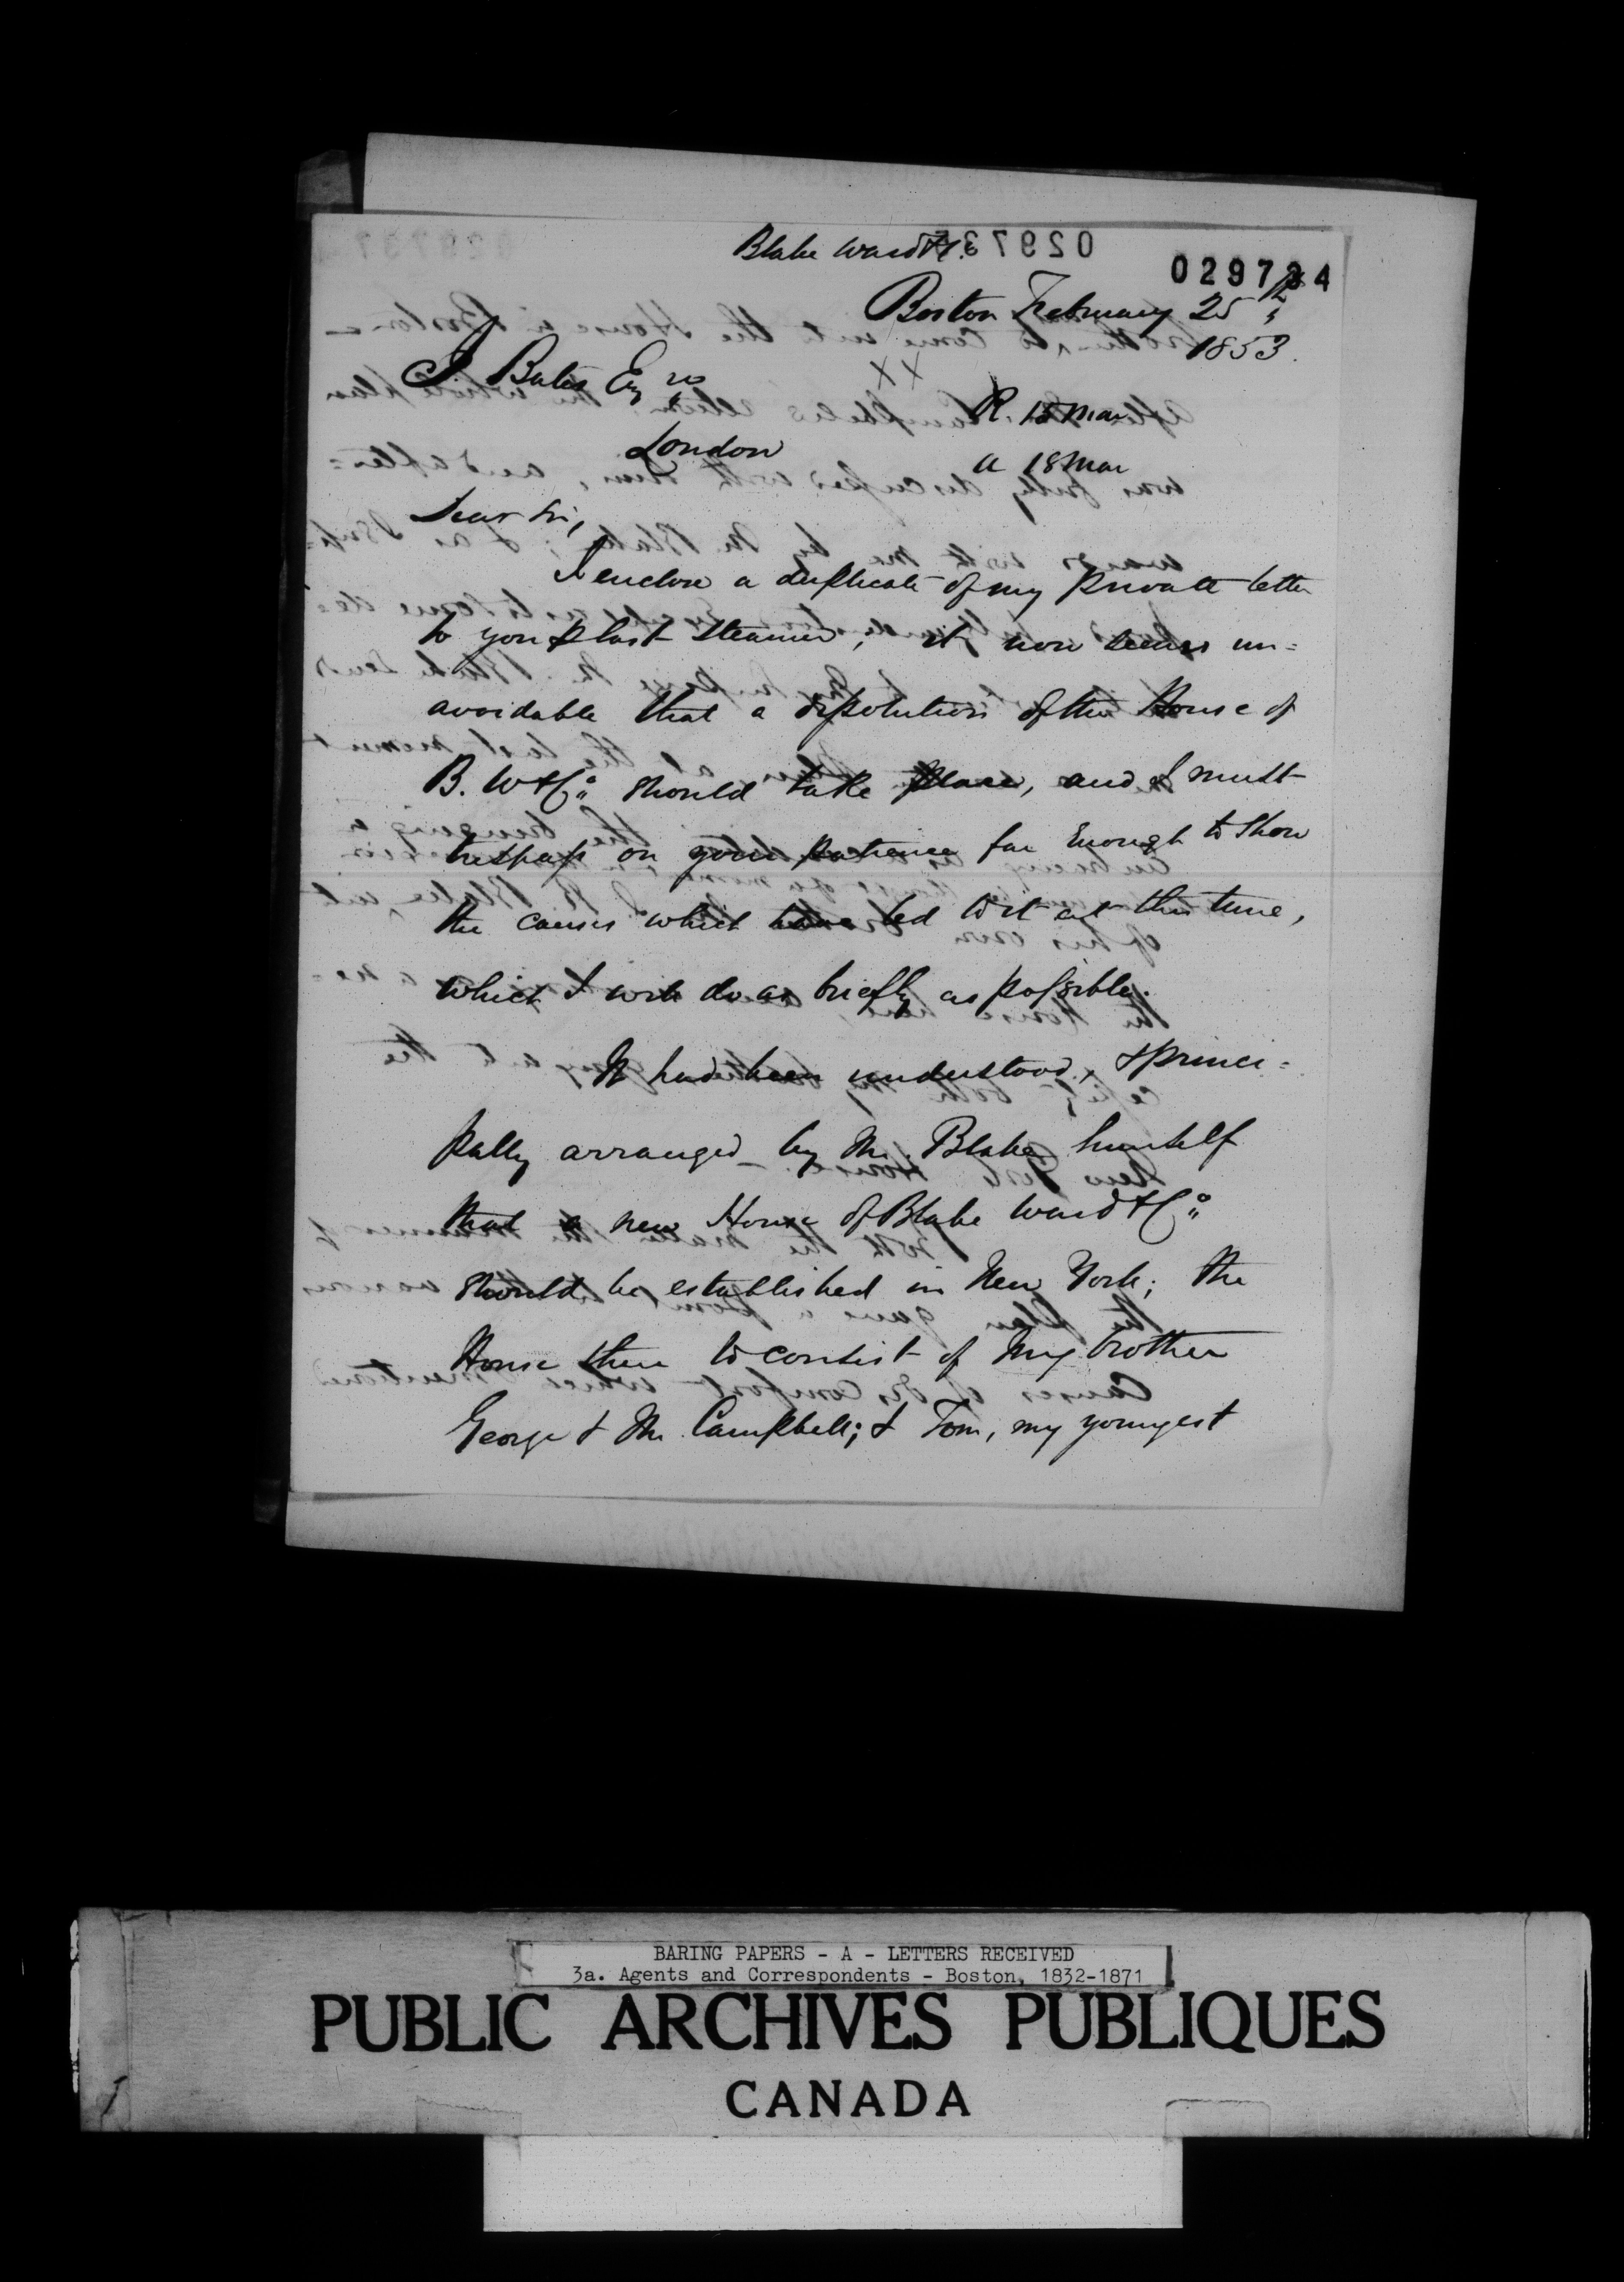 Blake Ward & Co.
029734
Boston February 25th,
1853.
J. Bates Esqre
R. 15 Mar
London
a 18 Mar
Dear Sir,
I enclose a duplicate of my private letter
to you p last steamer; it now seems un=
avoidable that a dissolution of the House of
B. W & Co. should take place, and I must
trespass on your patience far enough to show
the causes which have led to it at this time,
which I will do as briefly as possible.
It had been understood, & princi=
pally arranged by Mr. Blake himself
that a new House of Blake Ward & Co.
should be established in New York; the
House there to consist of my brother
George & Mr. Campbell; & Tom, my youngest
BARING PAPERS - A - LETTERS RECEIVED
3a. Agents and Correspondents - Boston, 1832-1871
PUBLIC ARCHIVES PUBLIQUES
CANADA